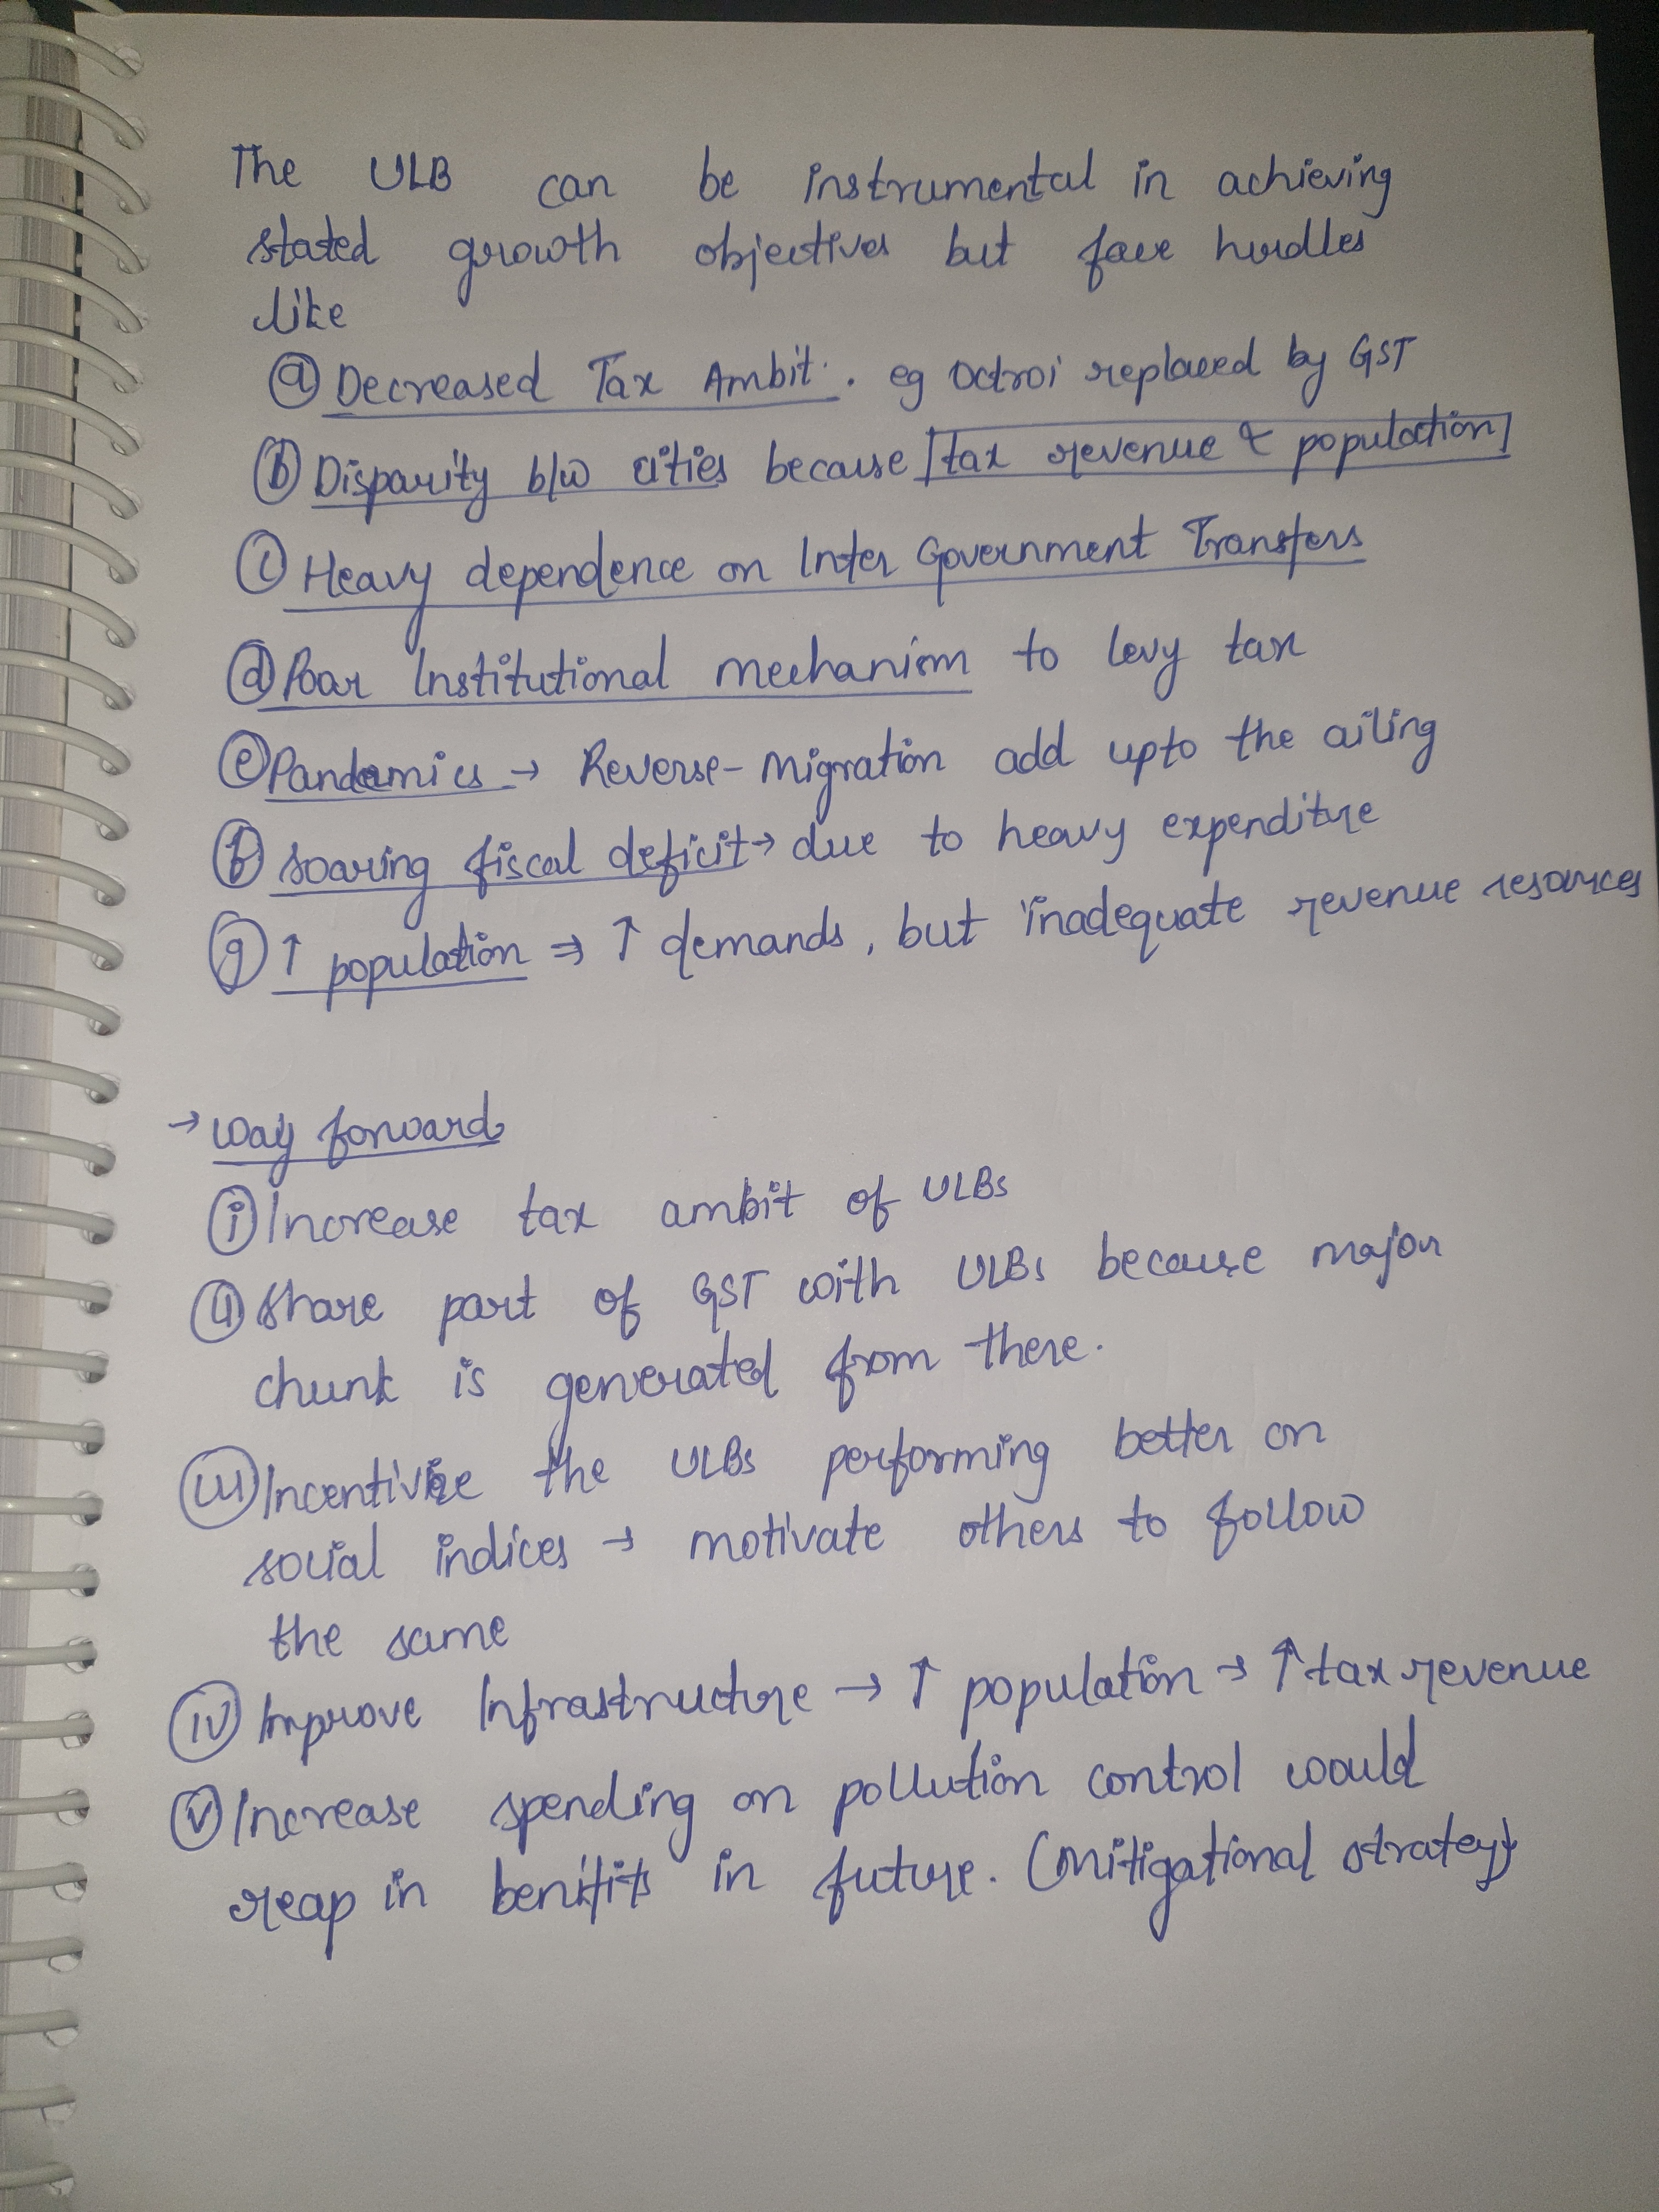 The ULB can be instrumental in achieving
stated growth objectives but face hurdles
like
(a) Decreased Tax Ambit. eg Octroi replaced by GST
(b) Disparity b/w cities because [tax revenue & population]
(c) Heavy dependence on Inter Government Transfers
(d) Poor Institutional mechanism to levy tax
(e) Pandemics → Reverse-Migration add upto the ailing
(f) soaring fiscal deficit → due to heavy expenditure
(g) ↑ population ⇒ ↑ demands, but inadequate revenue resources
→ way forward
(i) Increase tax ambit of ULBs
(ii) share part of GST with ULBs because major
chunk is generated from there.
(iii) Incentivize the ULBs performing better on
social indices → motivate others to follow
the same
(iv) Improve Infrastructure → ↑ population → ↑ tax revenue
(v) Increase spending on pollution control would
reap in benifits in future. (Mitigational strategy)